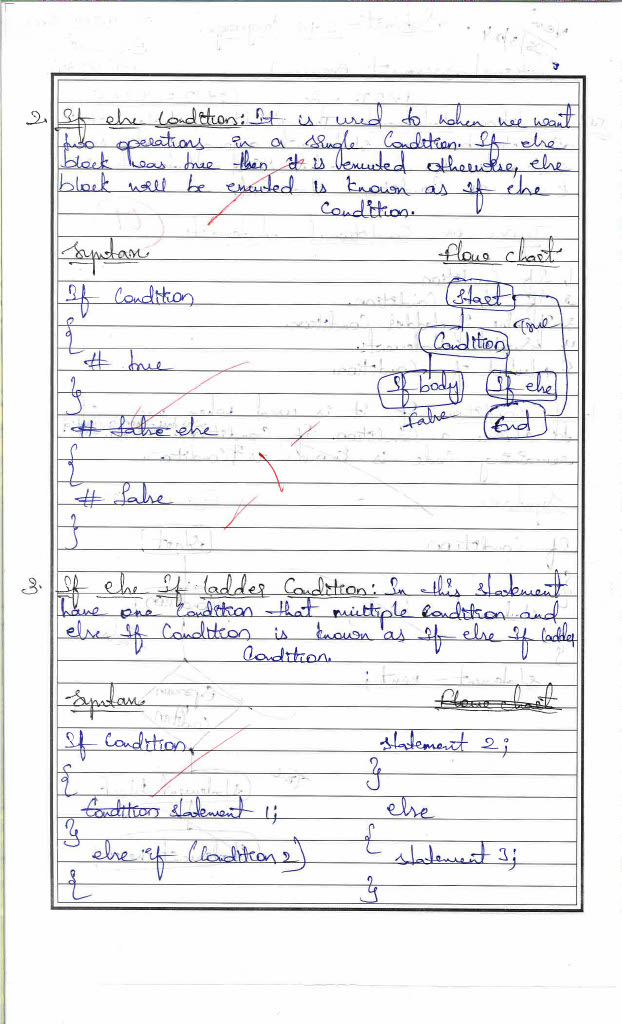 2. If else Condition: It is used to when we want
two operations in a single Condition. If else
block was true then it is executed otherwise, else
block will be executed is known as If else
Condition.
Syntax
Flow chart
If Condition
{
# true
}
# false else
{
# false
}
Start
True
Condition
If body
If else
false
End
3. If else If ladder Condition: In this statement
have one Condition that multiple Condition and
else If Condition is known as If else If ladder
Condition.
Syntax
Flow chart
If Condition
{
Condition statement 1;
}
else if (Condition 2)
{
statement 2;
}
else
{
statement 3;
}